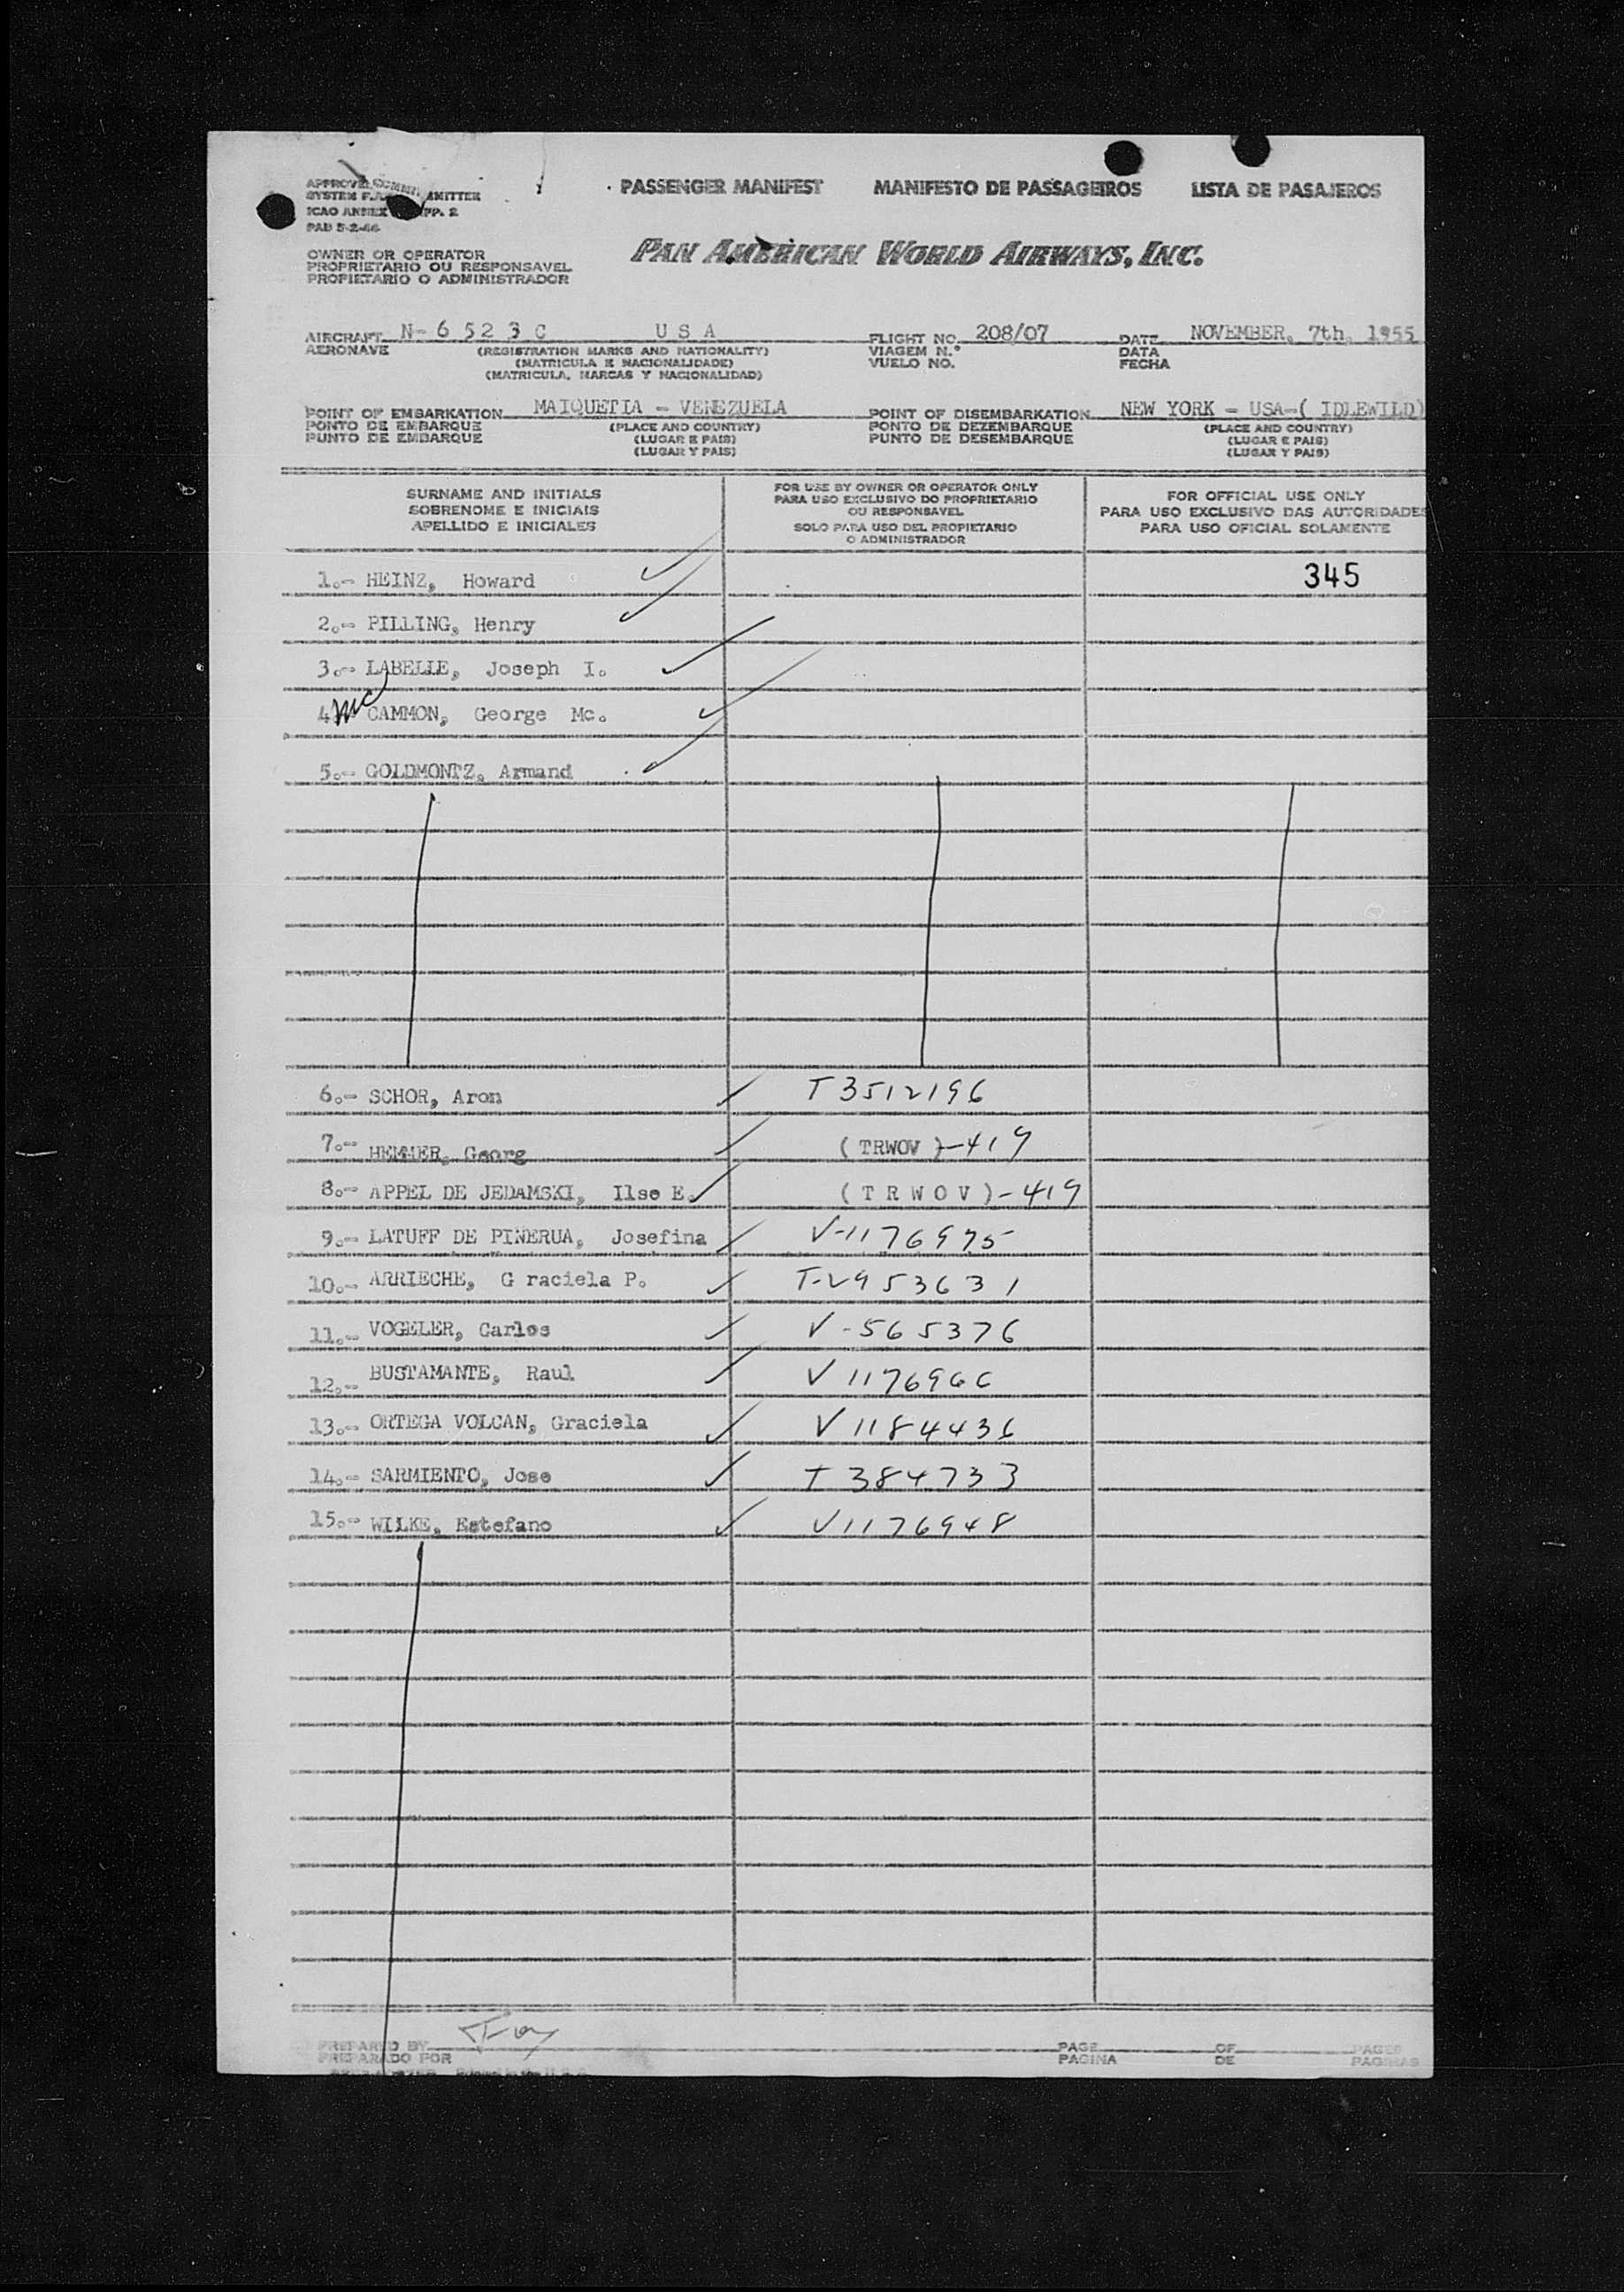 PASSENGER MANIFEST MANIFESTO DE PASSAGEIROS LISTA DE PASAJEROS
APPROVED
SYSTEM F.
ICAO ANNEX APP. 2
PAD 5-2-46
OWNER OR OPERATOR
PROPRIETARIO OU RESPONSAVEL
PROPIETARIO O ADMINISTRADOR
PAN AMERICAN WORLD AIRWAYS, INC.
AIRCRAFT N-6 5 2 3 C U S A FLIGHT NO. 208/07 DATE NOVEMBER, 7th, 1955
AERONAVE (REGISTRATION MARKS AND NATIONALITY) VIAGEM N.º DATA
(MATRICULA E NACIONALIDADE) VUELO NO. FECHA
(MATRICULA, MARCAS Y NACIONALIDAD)
POINT OF EMBARKATION MAIQUETIA - VENEZUELA POINT OF DISEMBARKATION NEW YORK - USA-( IDLEWILD)
PONTO DE EMBARQUE (PLACE AND COUNTRY) PONTO DE DEZEMBARQUE (PLACE AND COUNTRY)
PUNTO DE EMBARQUE (LUGAR E PAIS) PUNTO DE DESEMBARQUE (LUGAR E PAIS)
(LUGAR Y PAIS) (LUGAR Y PAIS)
SURNAME AND INITIALS
SOBRENOME E INICIAIS
APELLIDO E INICIALES
FOR USE BY OWNER OR OPERATOR ONLY
PARA USO EXCLUSIVO DO PROPRIETARIO
OU RESPONSAVEL
SOLO PARA USO DEL PROPIETARIO
O ADMINISTRADOR
FOR OFFICIAL USE ONLY
PARA USO EXCLUSIVO DAS AUTORIDADES
PARA USO OFICIAL SOLAMENTE
1.- HEINZ, Howard 345
2.- PILLING, Henry
3.- LABELLE, Joseph I.
4 Mc CAMMON, George Mc.
5.- GOLDMONTZ, Armand
6.- SCHOR, Aron T 3512196
7.- HEMMER, Georg ( TRWOV )-419
8.- APPEL DE JEDAMSKI, Ilse E. ( T R W O V )-419
9.- LATUFF DE PINERUA, Josefina V-1176975
10.- ARRIECHE, G raciela P. T-2953631
11.- VOGELER, Carlos V-565376
12.- BUSTAMANTE, Raul V 1176966
13.- ORTEGA VOLCAN, Graciela V 1184436
14.- SARMIENTO, Jose T 384733
15.- WILKE, Estefano V1176948
PREPARED BY PAGE OF PAGES
PREPARADO POR PAGINA DE PAGINAS